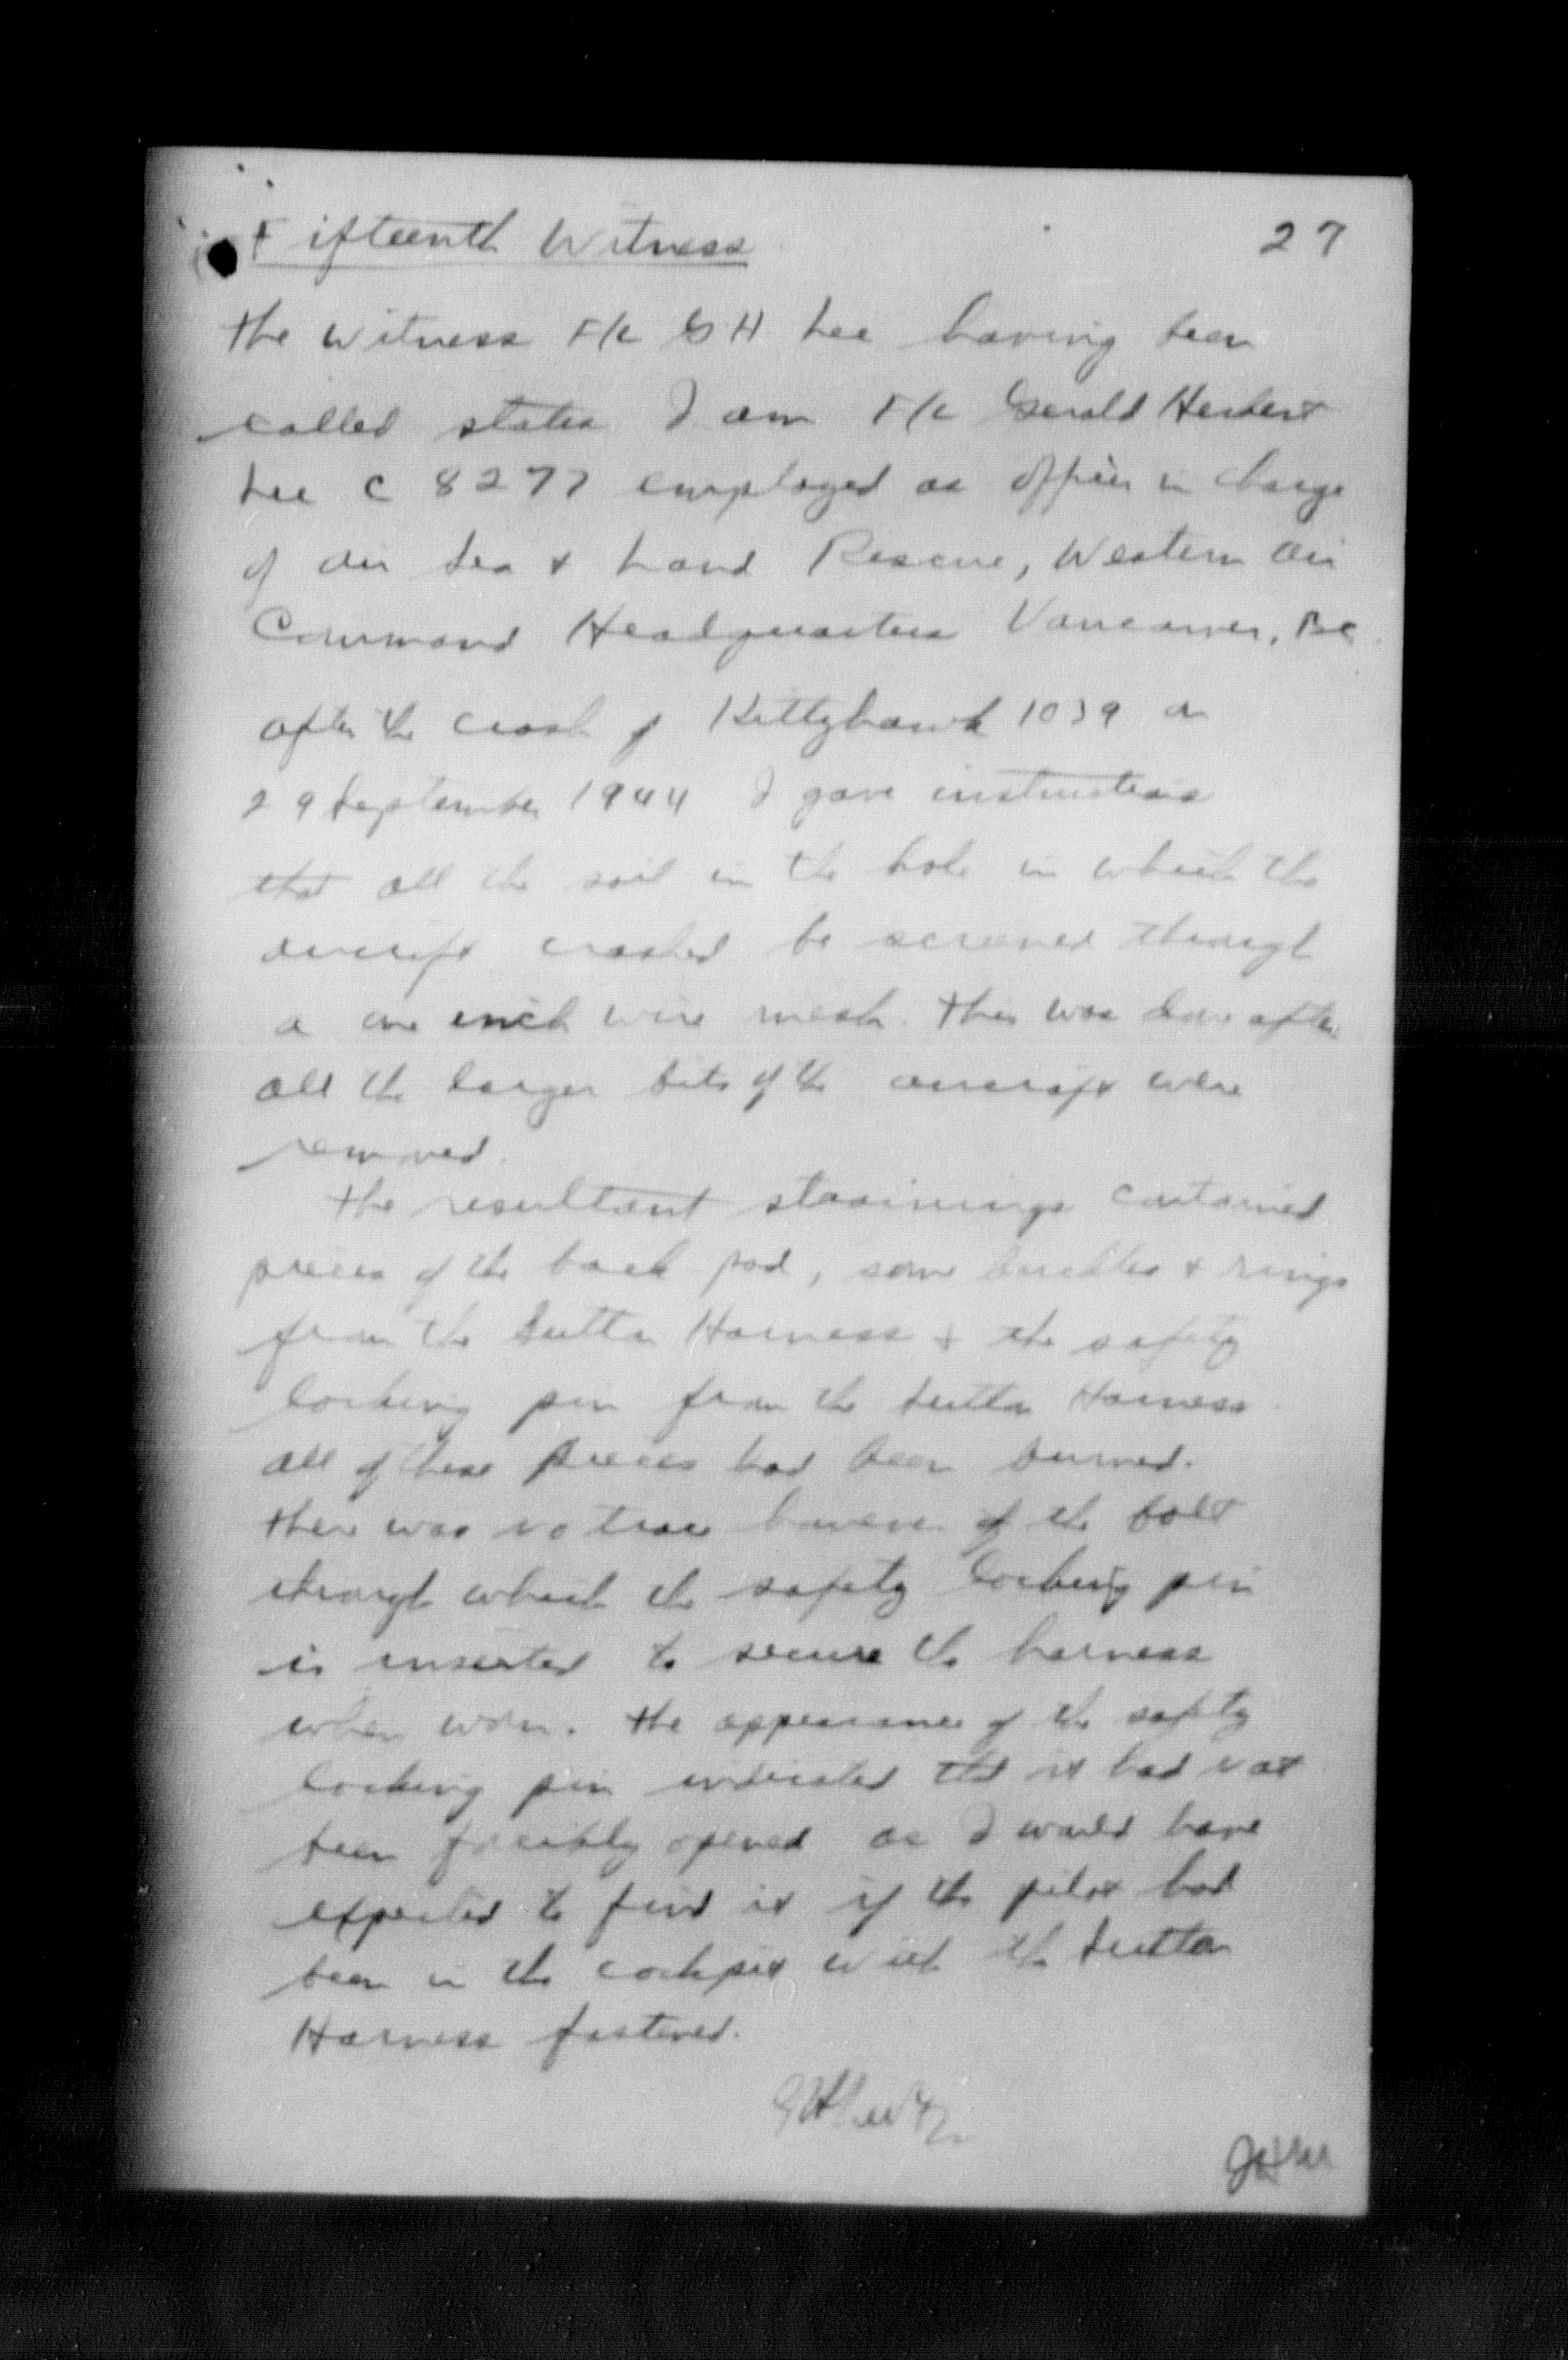 Fifteenth Witness
27
The witness F/L G H Lee having been
called states I am F/L Gerald Herbert
Lee C 8277 employed as officer in charge
of Air Sea & Land Rescue, Western Air
Command Headquarters Vancouver, BC.
after the crash of Kittyhawk 1039 on
29 September 1944 I gave instructions
that all the soil in the hole in which the
aircraft crashed be screened through
a one inch wire mesh. This was done after
all the larger bits of the aircraft were
removed.
The resultant strainings contained
pieces of the back pad, some buckles & rings
from the Sutton Harness & the safety
locking pin from the Sutton Harness.
all of these pieces had been burned.
There was no trace however of the bolt
through which the safety locking pin
is inserted to secure the harness
when worn. The appearance of the safety
locking pin indicated that it had not
been forcibly opened as I would have
expected to find it if the pilot had
been in the cockpit with the Sutton
Harness fastened.
GH Lee F/L